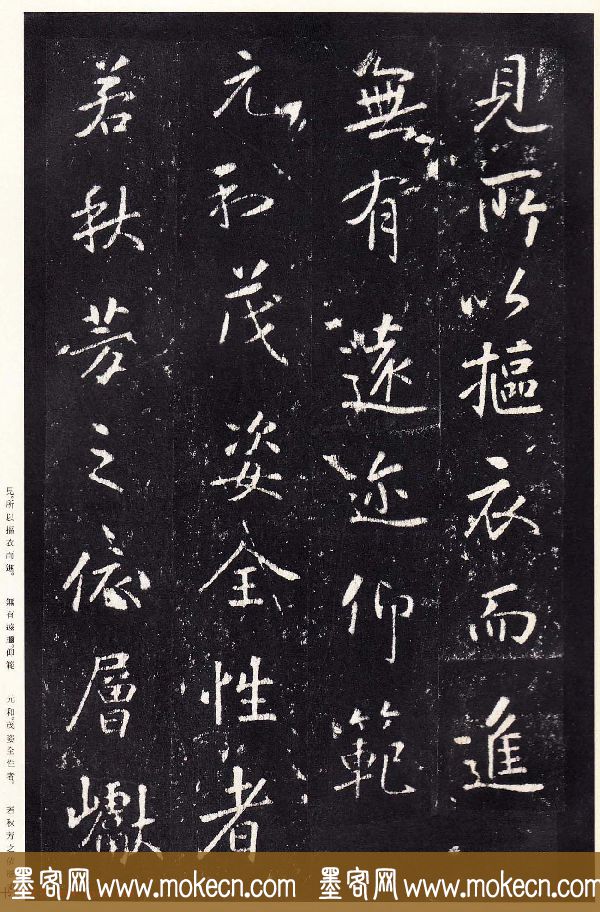 見所以摳衣而進
無有遠迩仰範
元和茂姿全性者
若秋芳之依層巘
見。所以摳衣而進。 無有遠邇。仰範 元和。茂姿全性者。 若秋方之依
墨客网 www.mokecn.com 墨客网 www.mokecn.com